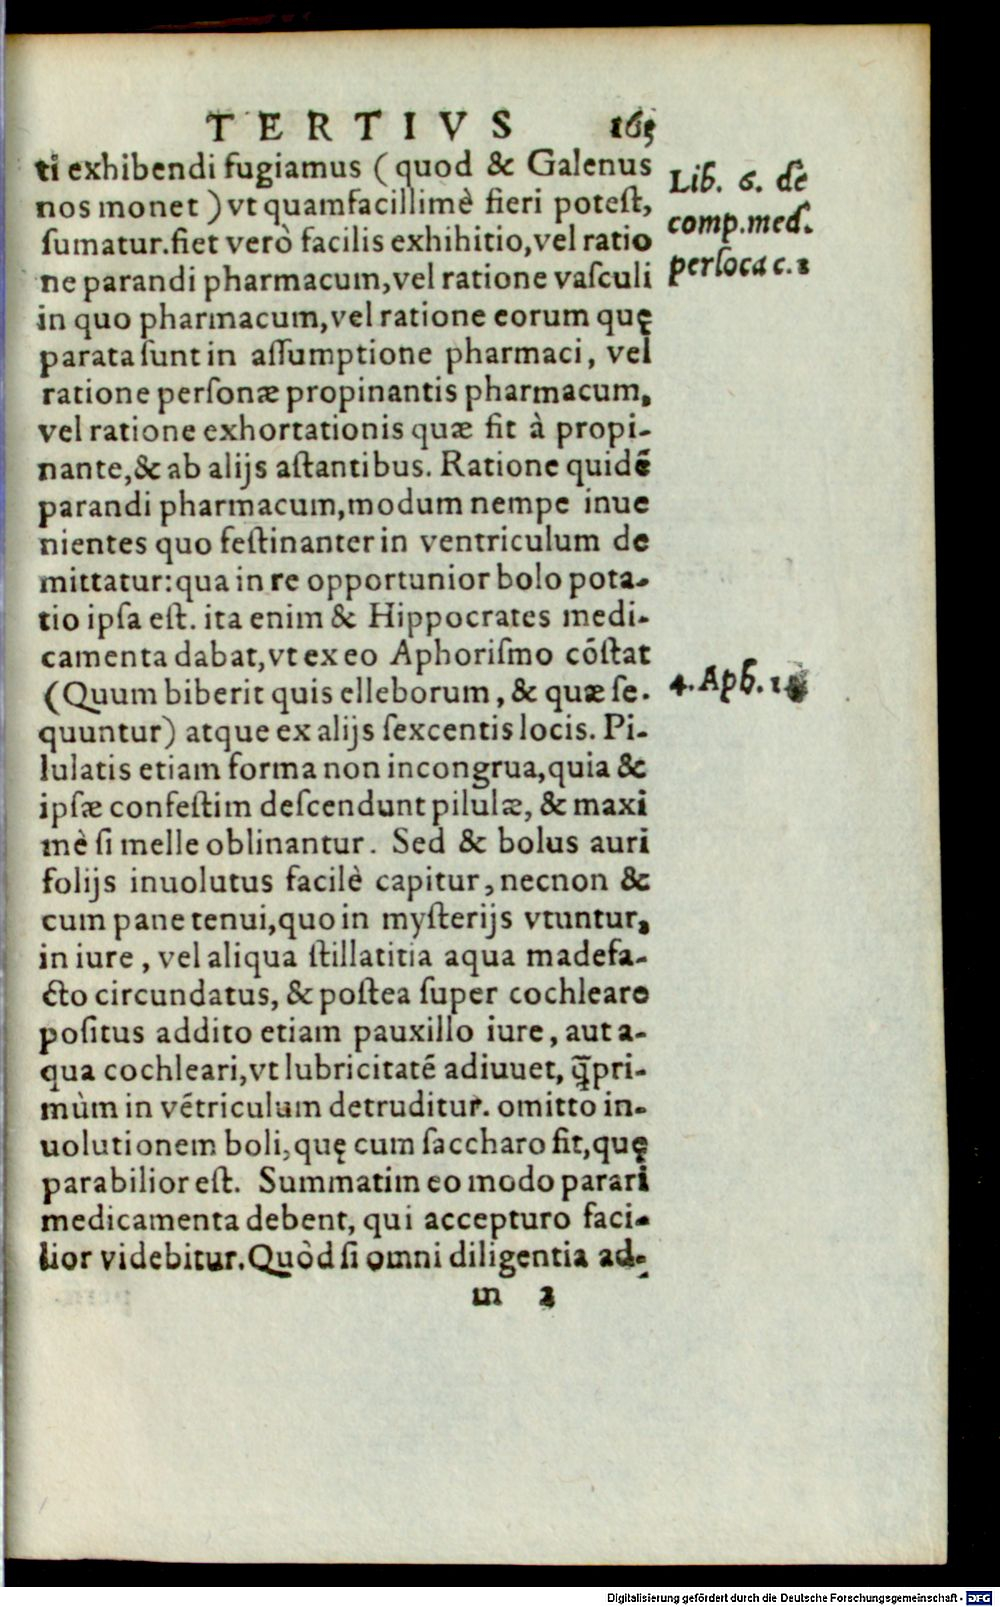 TERTIVS 165
ti exhibendi fugiamus ( quod & Galenus
nos monet ) vt quamfacillimè fieri poteſt,
ſumatur. fiet verò facilis exhihitio, vel ratio
ne parandi pharmacum, vel ratione vaſculi
in quo pharmacum, vel ratione eorum quę
parata ſunt in aſſumptione pharmaci, vel
ratione perſonæ propinantis pharmacum,
vel ratione exhortationis quæ fit à propi-
nante, & ab alijs aſtantibus. Ratione quidē
parandi pharmacum, modum nempe inue
nientes quo feſtinanter in ventriculum de
mittatur: qua in re opportunior bolo pota-
tio ipſa eſt. ita enim & Hippocrates medi-
camenta dabat, vt ex eo Aphoriſmo cōſtat
(Quum biberit quis elleborum, & quæ ſe-
quuntur) atque ex alijs ſexcentis locis. Pi-
lulatis etiam forma non incongrua, quia &
ipſæ confeſtim deſcendunt pilulæ, & maxi
mè ſi melle oblinantur. Sed & bolus auri
folijs inuolutus facilè capitur, necnon &
cum pane tenui, quo in myſterijs vtuntur,
in iure, vel aliqua ſtillatitia aqua madefa-
cto circundatus, & poſtea ſuper cochleare
poſitus addito etiam pauxillo iure, aut a-
qua cochleari, vt lubricitatē adiuuet, q̃pri-
mùm in vētriculum detruditur. omitto in-
uolutionem boli, quę cum ſaccharo fit, quę
parabilior eſt. Summatim eo modo parari
medicamenta debent, qui accepturo faci-
lior videbitur. Quòd ſi omni diligentia ad-
m 3
Lib. 6. de
comp. med.
per loca c. 2
4. Aph.
Digitalisierung gefördert durch die Deutsche Forschungsgemeinschaft - DFG